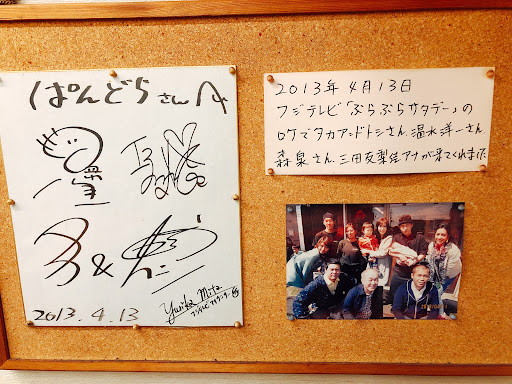 ぱんどらさんへ
&
Yurika Mita
2013.4.13
2013年4月13日
フジテレビ「ぶらぶらサタデー」の
ロケでタカアンドトシさん 温水洋一さん
森泉さん 三田友梨佳アナが来てくれました